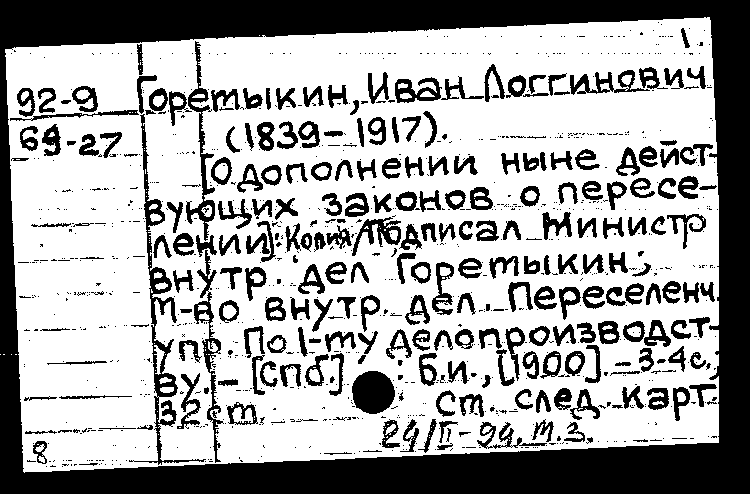 1.
92-9 Горетыкин, Иван Логгинович
69-27 (1839-1917).
[О дополнении ныне дейст-
вующих законов о пересе-
лении]: Копия / Подписал Министр
внутр. дел Горетыкин;
М-во внутр. дел. Переселенч.
упр. По 1-му делопроизводст-
ву. - [Спб.] : б.и., [1900]. - 3-4с.;
32ст. См. след. карт.
24/II-94. М.З.
8